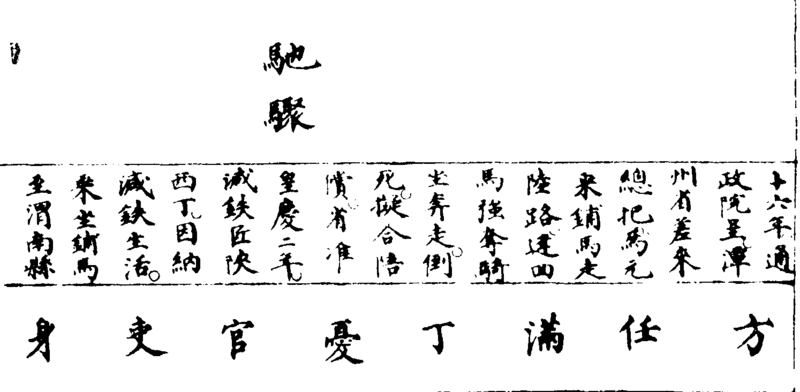 馳驟
十六年通
政院呈潭
州省差來
總把馬元
來鋪馬走
陸路遶四
馬強奪騎
坐奔走倒
死擬合陪
償省准
皇慶二年
減鉄匠陝
西丁因納
減鉄生活
乘坐鋪馬
至渭南縣
方
任
滿
丁
憂
官
吏
身